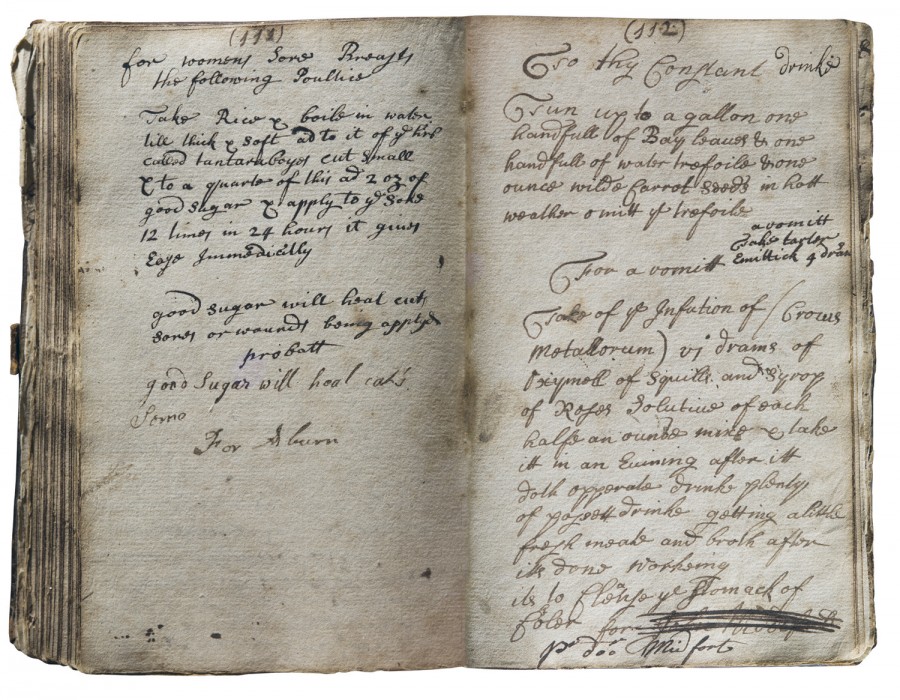 (111)
for womens Sore Breasts
the following Poultice
Take Rice & boile in water
till thick & soft ad to it of ye
called tantaraboyes cut small
& to a quarte of this ad 2 oz of
good sugar & apply to ye Sore
12 times in 24 hours it gives
Ease Immedicilly
good sugar will heal cuts
sores or wounds being applyd
probatt
good Sugar will heal cats
For A burn
(112)
To thy Constant drinke
Tun up to a gallon one
handfull of Bay leaves & one
handfull of water trefoile & one
ounce wilde Carrot Seeds in hott
weather omitt ye trefoile
a vomitt
Take tarter
Emittick 4 drams
For a vomitt
Take of ye Infution of (Crocus
Metallorum) vj drams of
Oxymell of Squills and Syrop
of Roses Solutive of each
halfe an ounce mixe & take
itt in an Evining after itt
doth opperate drinke plenty
of possett drinke getting a little
fresh meate and broth after
its done workeing
its to Clense ye Stomack of
Coler for
pr doc Midfort